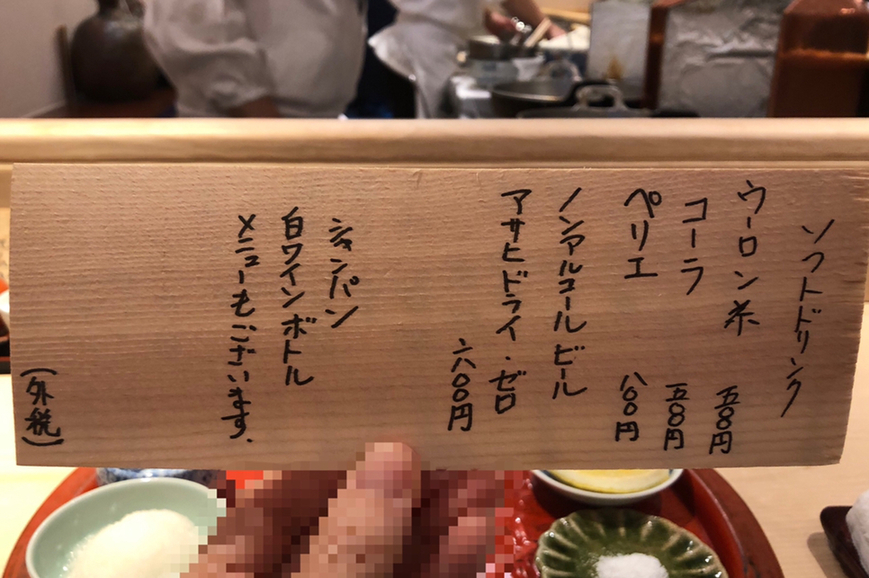 ソフトドリンク
ウーロン茶 五〇〇円
コーラ 五〇〇円
ペリエ 八〇〇円
ノンアルコールビール
アサヒドライ・ゼロ
六〇〇円
シャンパン
白ワインボトル
メニューもございます.
(外税)